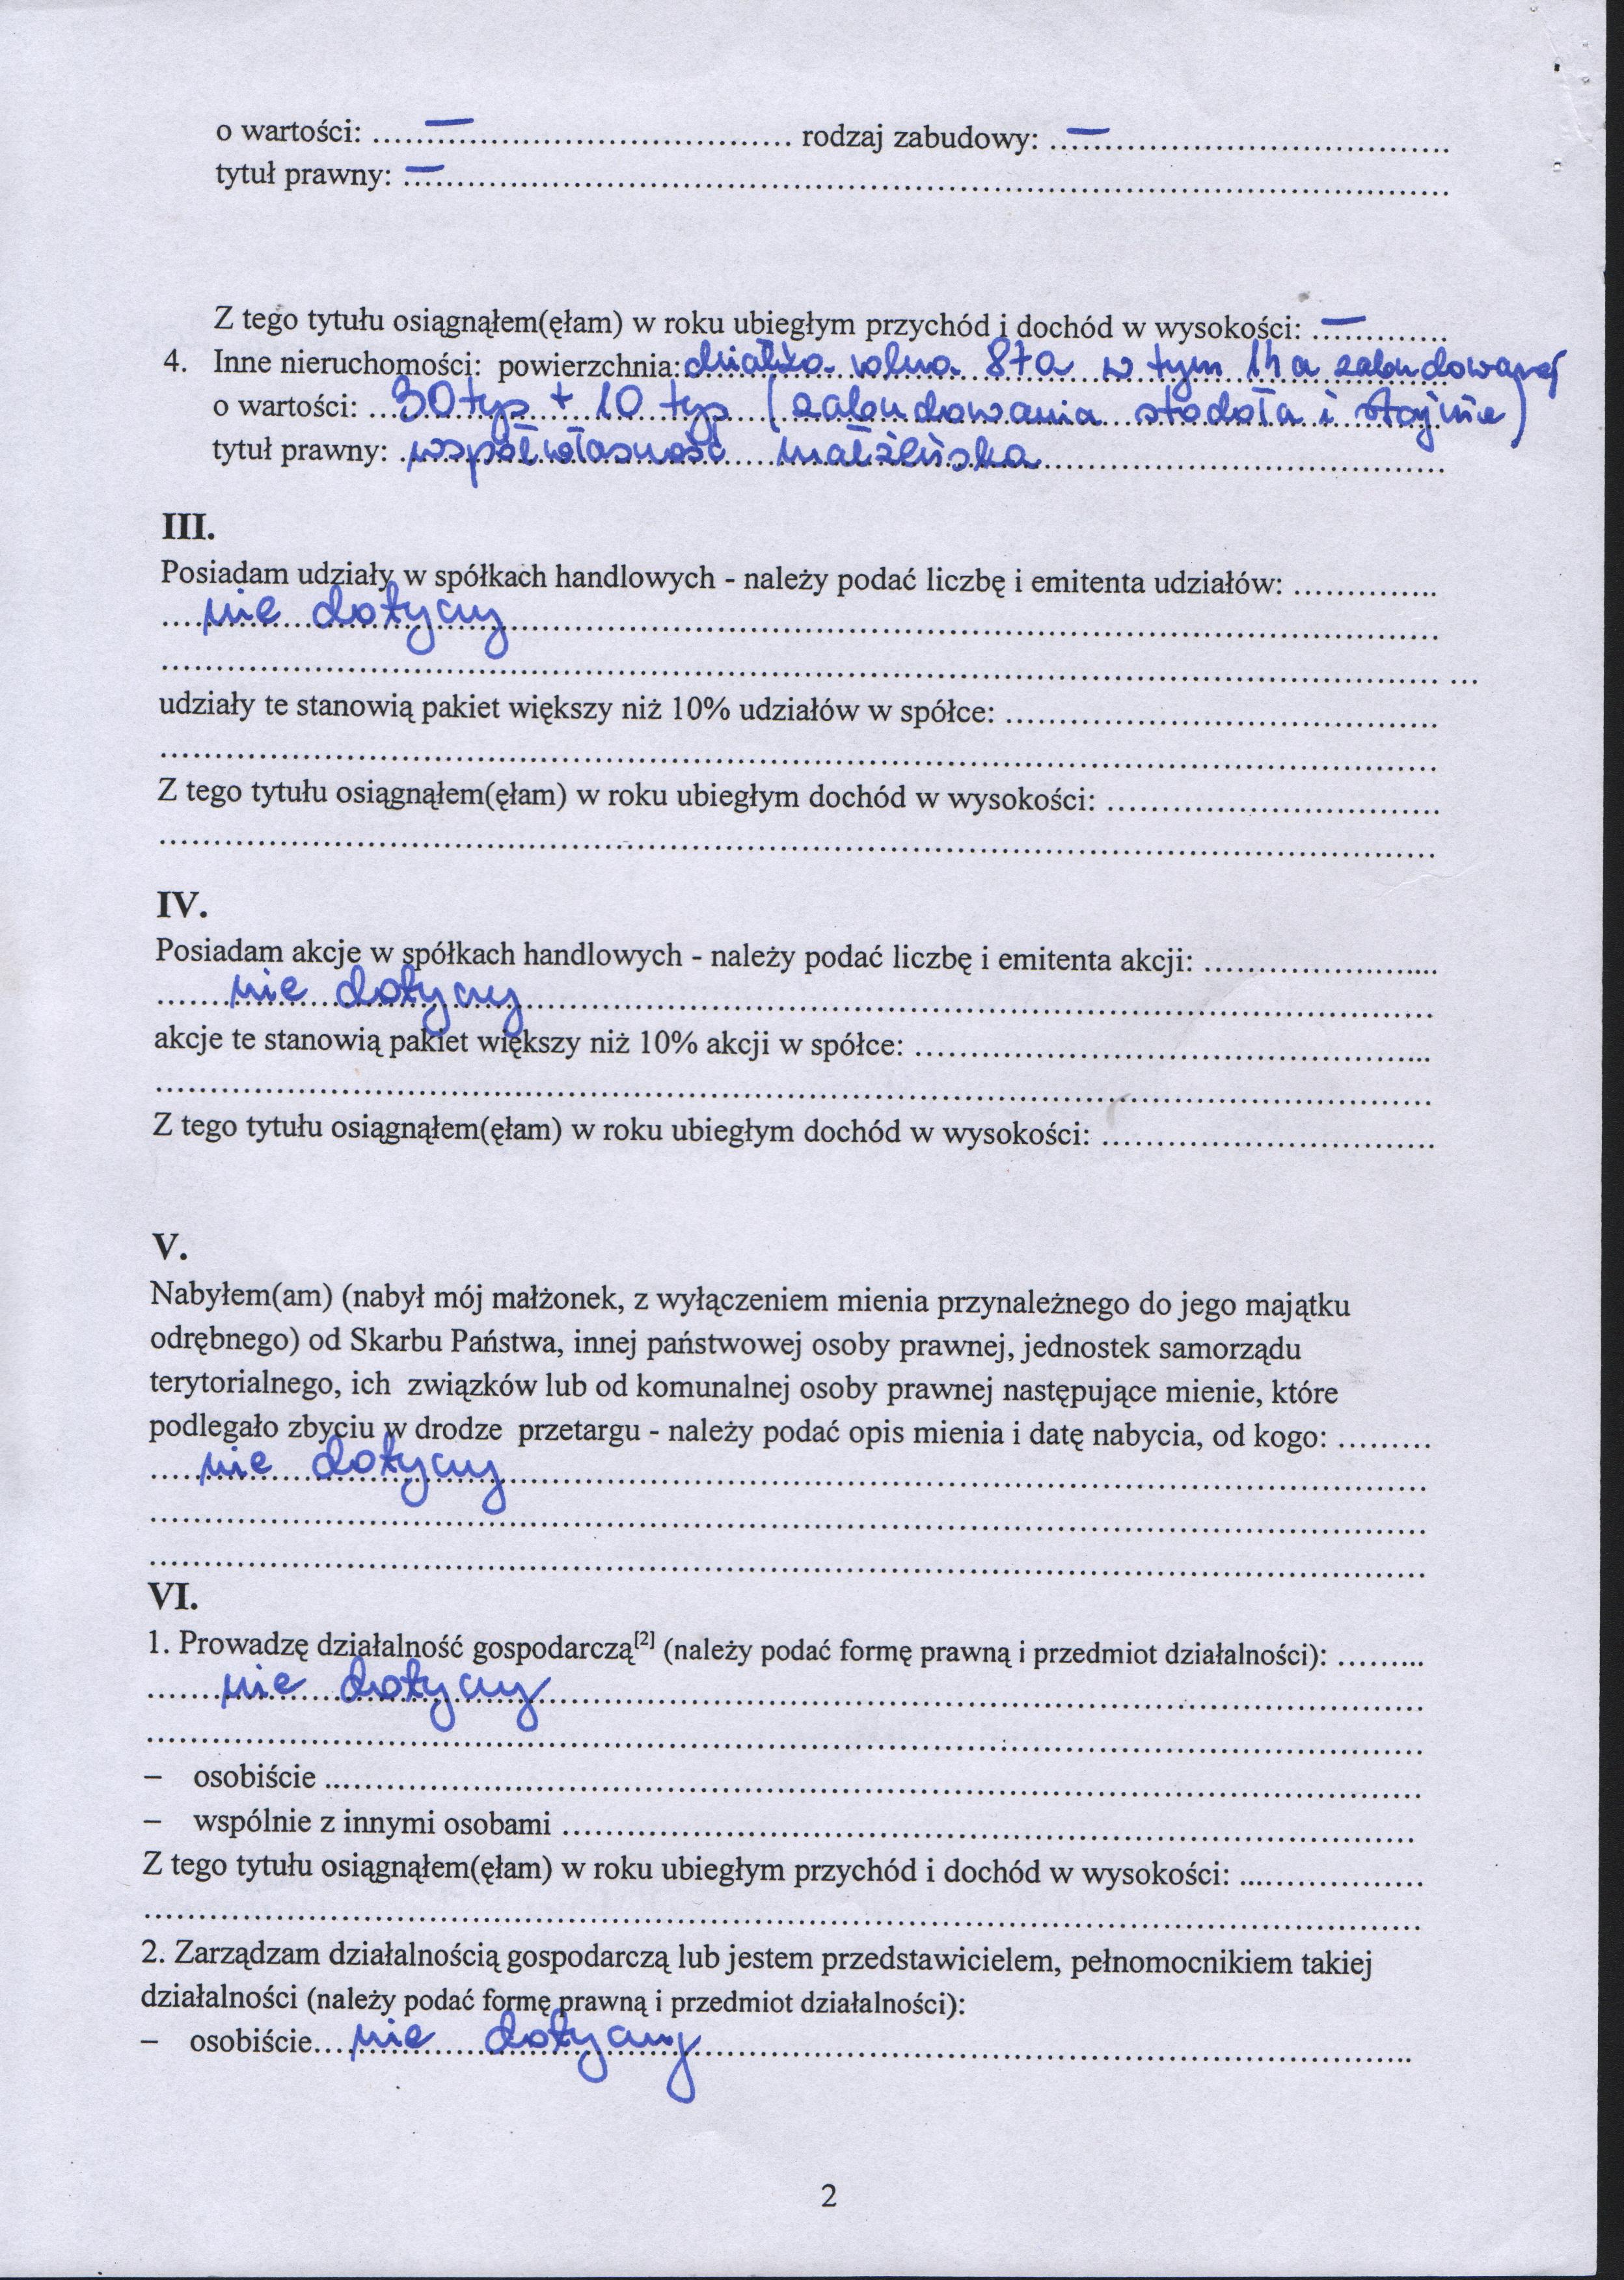 o wartości: .....—........................................ rodzaj zabudowy: ..—....................................
tytuł prawny: —....................................................................................................
Z tego tytułu osiągnąłem(ęłam) w roku ubiegłym przychód i dochód w wysokości: ..—...........
4. Inne nieruchomości: powierzchnia: działka rolna 87a w tym 14 a zabudowanej
o wartości: ...30 tys + 10 tys (zabudowania stodoła i stajnia)
tytuł prawny: współwłasność małżeńska....................................
III.
Posiadam udziały w spółkach handlowych - należy podać liczbę i emitenta udziałów: ..............
....nie dotyczy....................................................................................
.................................................................................................... ...
udziały te stanowią pakiet większy niż 10% udziałów w spółce: ........................................
....................................................................................................
Z tego tytułu osiągnąłem(ęłam) w roku ubiegłym dochód w wysokości: ................................
....................................................................................................
IV.
Posiadam akcje w spółkach handlowych - należy podać liczbę i emitenta akcji: ......................
......nie dotyczy..................................................................................
akcje te stanowią pakiet większy niż 10% akcji w spółce: ................................................
....................................................................................................
Z tego tytułu osiągnąłem(ęłam) w roku ubiegłym dochód w wysokości: ...............................
V.
Nabyłem(am) (nabył mój małżonek, z wyłączeniem mienia przynależnego do jego majątku
odrębnego) od Skarbu Państwa, innej państwowej osoby prawnej, jednostek samorządu
terytorialnego, ich związków lub od komunalnej osoby prawnej następujące mienie, które
podlegało zbyciu w drodze przetargu - należy podać opis mienia i datę nabycia, od kogo: .........
....nie dotyczy....................................................................................
....................................................................................................
....................................................................................................
VI.
1. Prowadzę działalność gospodarczą[2] (należy podać formę prawną i przedmiot działalności): .........
......nie dotyczy..................................................................................
....................................................................................................
– osobiście ....................................................................................................
– wspólnie z innymi osobami ................................................................................
Z tego tytułu osiągnąłem(ęłam) w roku ubiegłym przychód i dochód w wysokości: .................
....................................................................................................
2. Zarządzam działalnością gospodarczą lub jestem przedstawicielem, pełnomocnikiem takiej
działalności (należy podać formę prawną i przedmiot działalności):
– osobiście...nie dotyczy....................................................................
2